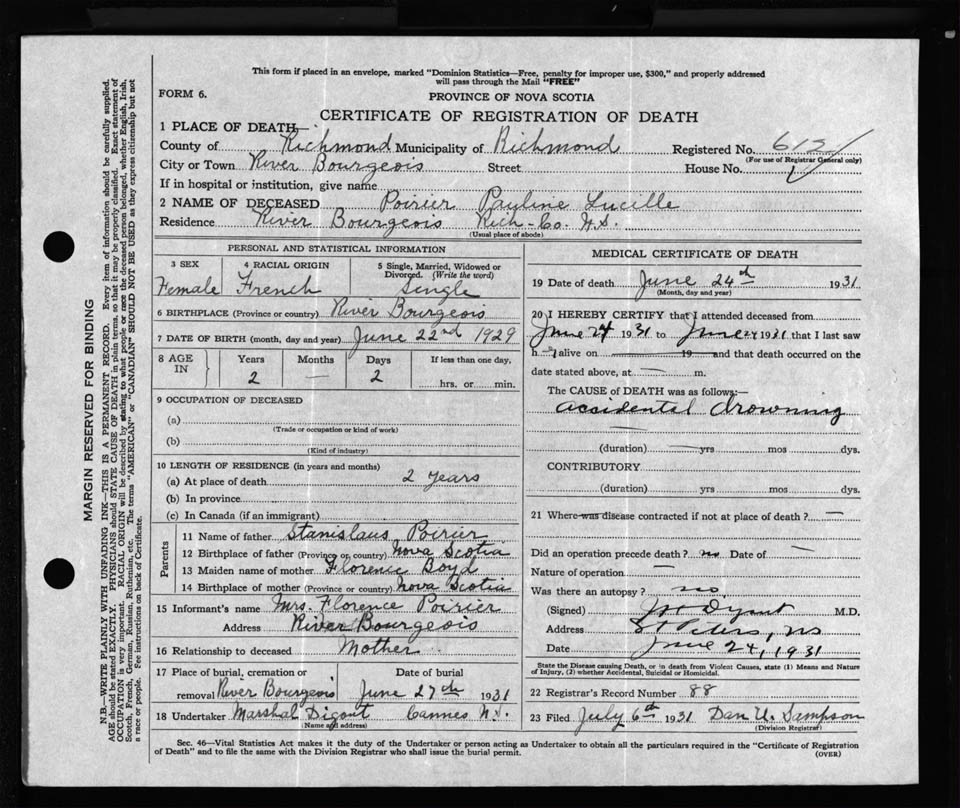 This form if placed in an envelope, marked "Dominion Statistics—Free, penalty for improper use, $300," and properly addressed
will pass through the Mail "FREE"
FORM 6.
PROVINCE OF NOVA SCOTIA
CERTIFICATE OF REGISTRATION OF DEATH
1 PLACE OF DEATH—
County of Richmond Municipality of Richmond Registered No.
(For use of Registrar General only)
City or Town River Bourgeois Street House No.
If in hospital or institution, give name
2 NAME OF DECEASED Poirier Pauline Lucille
Residence River Bourgeois Rich-Co. N.S.
(Usual place of abode)
PERSONAL AND STATISTICAL INFORMATION
3 SEX 4 RACIAL ORIGIN 5 Single, Married, Widowed or
Divorced. (Write the word)
Female French Single
6 BIRTHPLACE (Province or country) River Bourgeois
7 DATE OF BIRTH (month, day and year) June 22nd 1929
8 AGE IN Years Months Days If less than one day,
2 — 2 hrs. or min.
9 OCCUPATION OF DECEASED
(a)
(Trade or occupation or kind of work)
(b)
(Kind of industry)
10 LENGTH OF RESIDENCE (in years and months)
(a) At place of death 2 years
(b) In province
(c) In Canada (if an immigrant)
Parents
11 Name of father Stanislaus Poirier
12 Birthplace of father (Province or country) Nova Scotia
13 Maiden name of mother Florence Boyd
14 Birthplace of mother (Province or country) Nova Scotia
15 Informant's name Mrs. Florence Poirier
Address River Bourgeois
16 Relationship to deceased Mother
17 Place of burial, cremation or Date of burial
removal River Bourgeois June 27th 1931
18 Undertaker Marshal Digout Cannes N.S.
(Name and address)
MEDICAL CERTIFICATE OF DEATH
19 Date of death June 24th 1931
(Month, day and year)
20 I HEREBY CERTIFY that I attended deceased from
June 24 1931 to June 24 1931 that I last saw
h alive on 19 and that death occurred on the
date stated above, at — m.
The CAUSE of DEATH was as follows:—
accidental drowning
(duration) yrs mos dys.
CONTRIBUTORY
(duration) yrs mos dys.
21 Where was disease contracted if not at place of death? —
Did an operation precede death? no Date of —
Nature of operation —
Was there an autopsy? no
(Signed) M.D.
Address St Peters, NS
Date June 24, 1931
State the Disease causing Death, or in death from Violent Causes, state (1) Means and Nature
of Injury, (2) whether Accidental, Suicidal or Homicidal.
22 Registrar's Record Number 88
23 Filed July 6th 1931 Dan U. Sampson
(Division Registrar)
Sec. 46—Vital Statistics Act makes it the duty of the Undertaker or person acting as Undertaker to obtain all the particulars required in the "Certificate of Registration
of Death" and to file the same with the Division Registrar who shall issue the burial permit.
(OVER)
MARGIN RESERVED FOR BINDING
N.B. WRITE PLAINLY WITH UNFADING INK—THIS IS A PERMANENT RECORD. Every item of information should be carefully supplied.
AGE should be stated EXACTLY. PHYSICIANS should STATE CAUSE OF DEATH in plain terms, so that it may be properly classified. Exact statement of
OCCUPATION is very important. RACIAL ORIGIN will be described by stating to what people or race the deceased person belonged, whether English, Irish,
Scotch, French, German, Russian, Ruthenian, etc. The terms "AMERICAN" or "CANADIAN" SHOULD NOT BE USED as they express citizenship but not
a race or people. See instructions on back of Certificate.